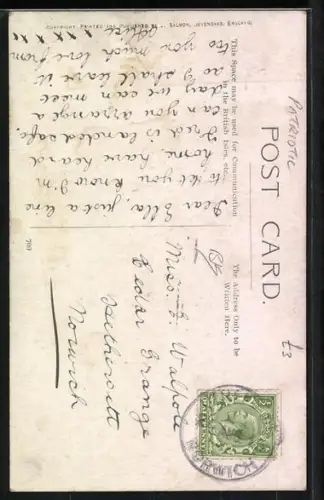 COPYRIGHT. PRINTED AND PUBLISHED BY J. SALMON, SEVENOAKS, ENGLAND.
PATRIOTIC
POST CARD.
This Space may be used for Communication
in the British Isles, etc.
The Address Only to be
Written Here.
£3
760
Dear Ella, just a line
to let you know I'm
home. have heard
Fred is landed safe.
can you arrange a
day we can meet
as I shall leave it
to you much love from
x x x x x
Miss. E. Walpole
Cedar Grange
Hethersett
Norwich